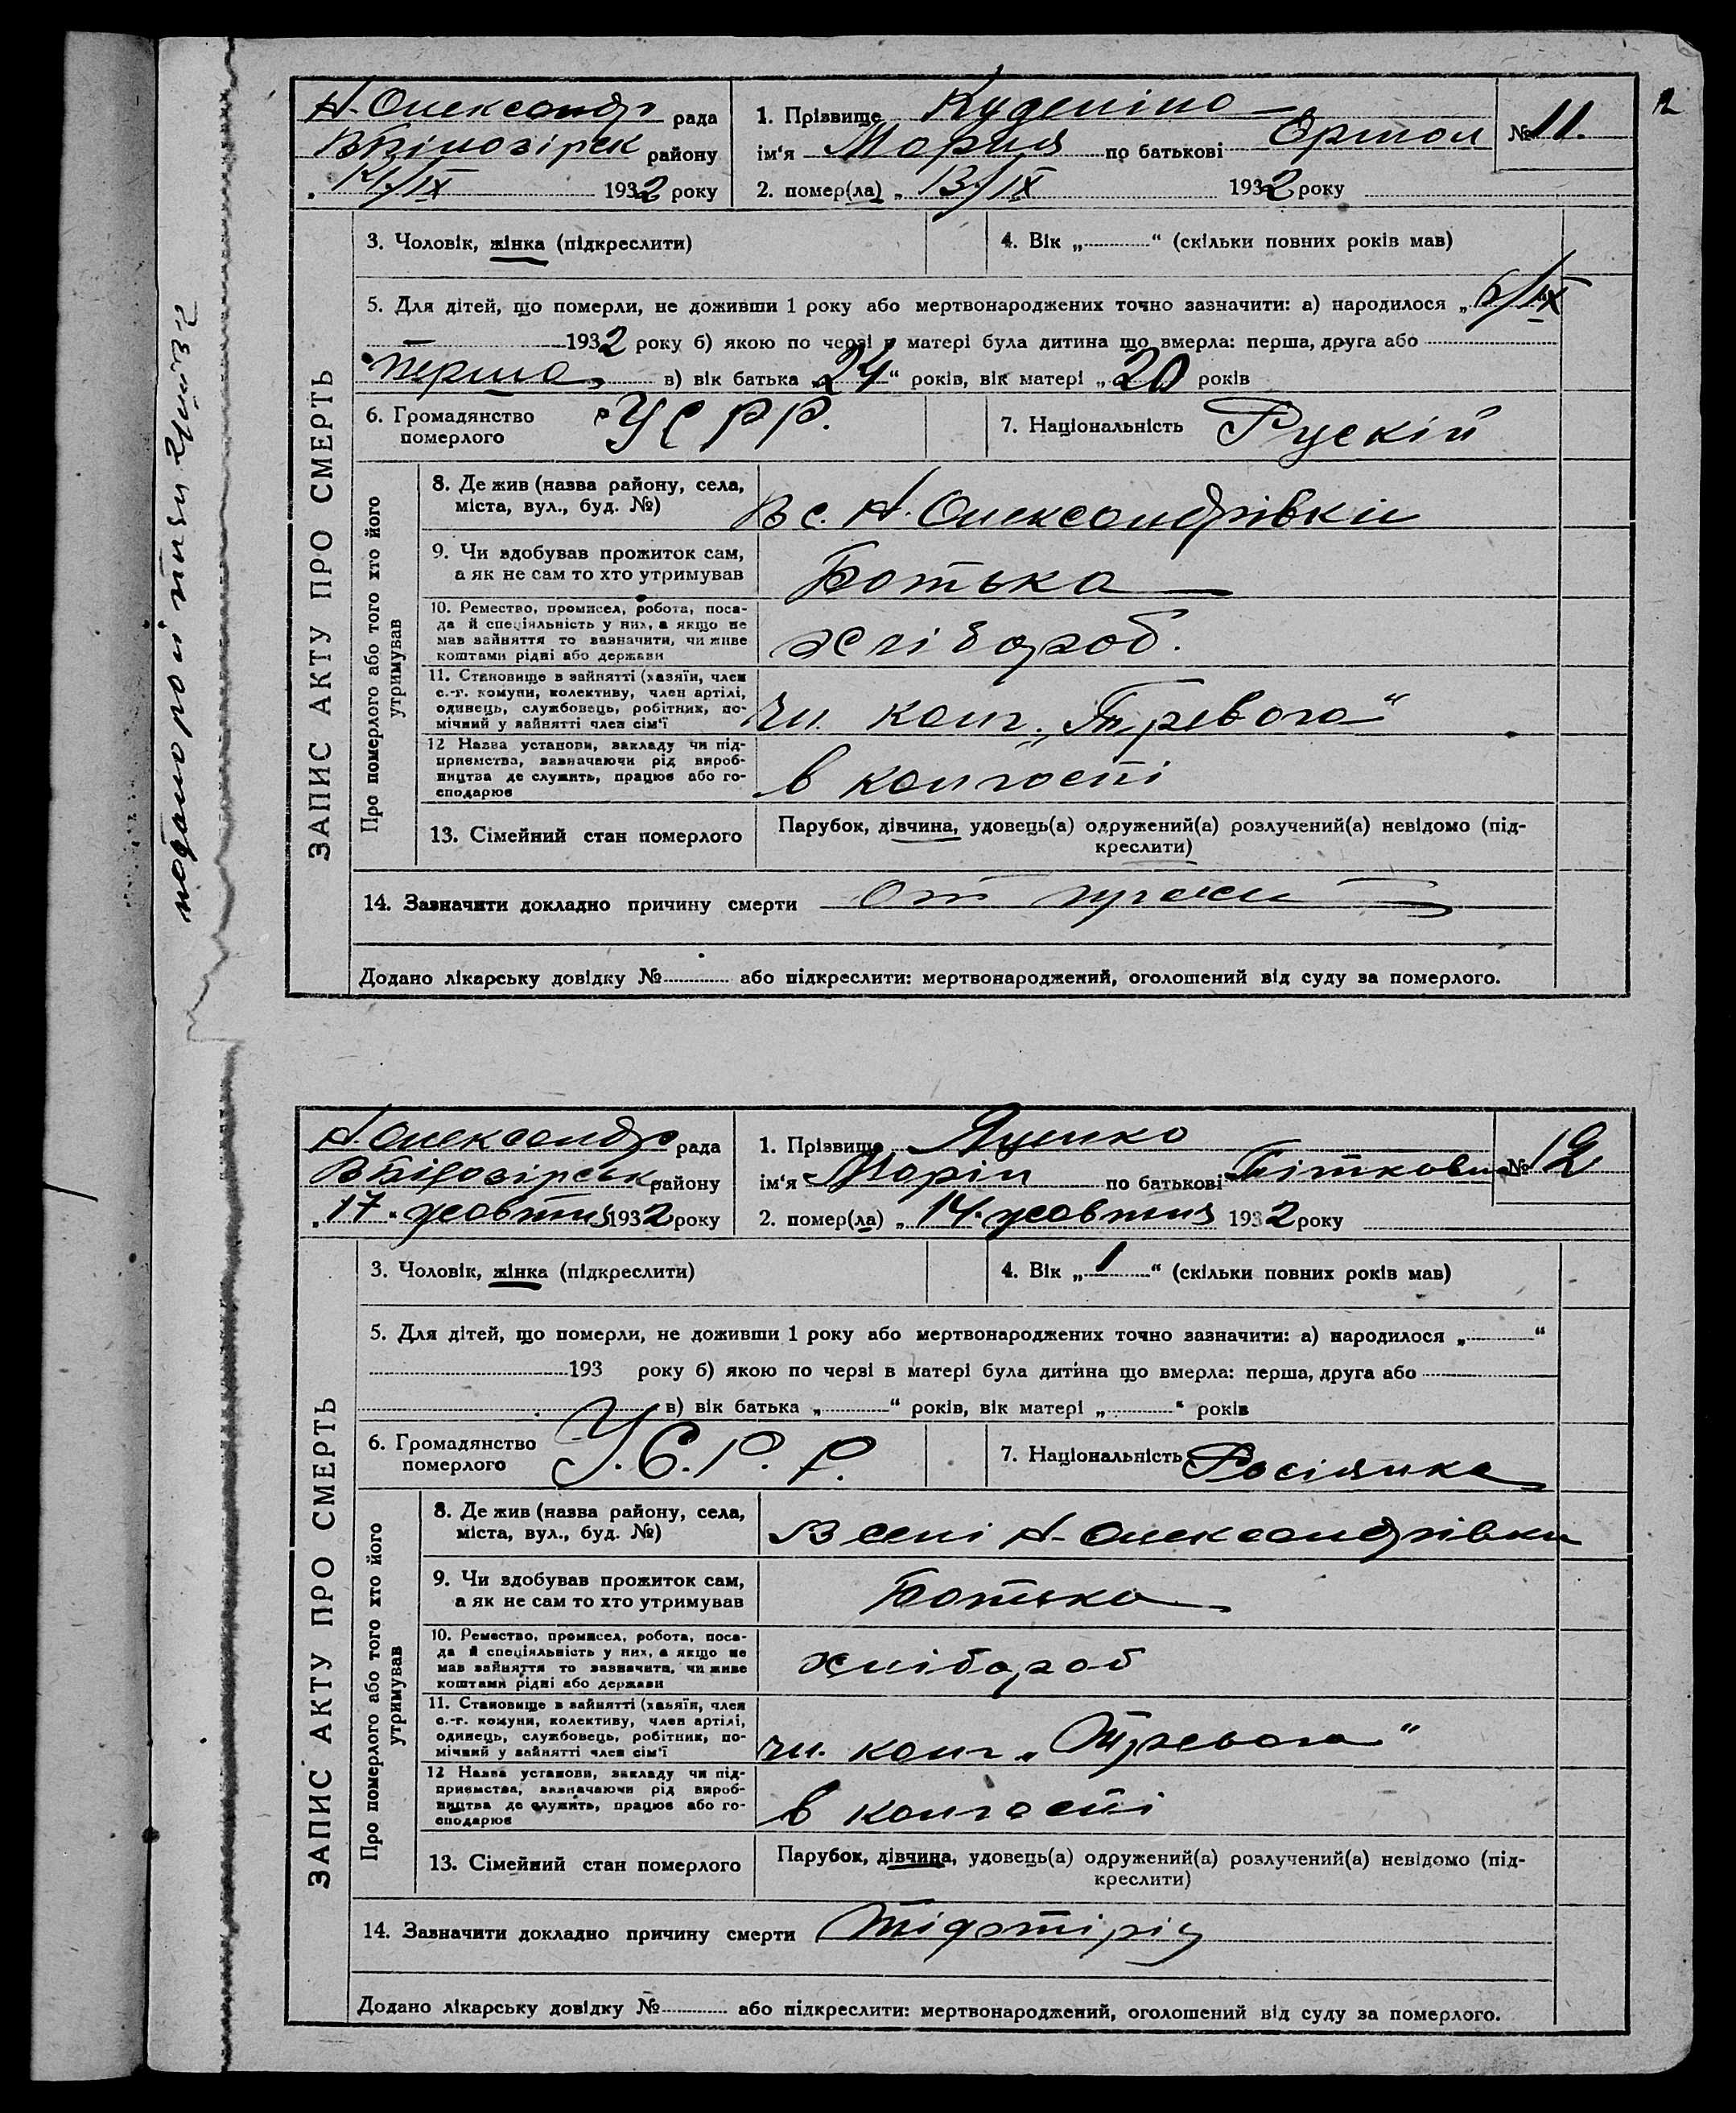 Н-Олександр рада
В Білозірск району
14/IX 1932 року
1. Прізвище
ім‘я Мория по батькові
2. помер(ла) „ 13/IX 1932 року
№ 11.
12
ЗАПИС АКТУ ПРО СМЕРТЬ
3. Чоловік, жінка (підкреслити)
4. Вік „ “ (скільки повних років мав)
5. Для дітей, що померли, не доживши 1 року або мертвонароджених точно зазначити: а) народилося „ 6/IX
1932 року б) якою по черзі в матері була дитина що вмерла: перша, друга або
перша в) вік батька „24“ років, вік матері „20 років
6. Громадянство
померлого
УСРР.
7. Національність Рускій
Про померлого або того хто його
утримував
8. Де жив (назва району, села,
міста, вул., буд. №)
В с. Н. Олександрівки
9. Чи здобував прожиток сам,
а як не сам то хто утримував
Ботька
10. Ремество, промисел, робота, поса-
да й спеціяльність у них, а якщо не
мав зайняття то зазначити, чи живе
коштами рідні або держави
хлібороб.
11. Становище в зайнятті (хазяїн, член
с.-г. комуни, колективу, член артілі,
одинець, службовець, робітник, по-
мічний у зайнятті член сім‘ї
чл. колг. „Тревога“
12 Назва установи, закладу чи під-
приємства, зазначаючи рід вироб-
ництва де служить, працює або го-
сподарює
в колгоспі
13. Сімейний стан померлого
Парубок, дівчина, удовець(а) одружений(а) розлучений(а) невідомо (під-
креслити)
14. Зазначити докладно причину смерти от
Додано лікарську довідку № або підкреслити: мертвонароджений, оголошений від суду за померлого.
Н-Олександр рада
В Білозірськ району
„17“ жовтня 1932 року
1. Прізвище Яценко
ім‘я Марія по батькові
2. помер(ла) „ 14. жовтня 1932 року
№ 12
ЗАПИС АКТУ ПРО СМЕРТЬ
3. Чоловік, жінка (підкреслити)
4. Вік „ 1 “ (скільки повних років мав)
5. Для дітей, що померли, не доживши 1 року або мертвонароджених точно зазначити: а) народилося „ “
193 року б) якою по черзі в матері була дитина що вмерла: перша, друга або
в) вік батька „ “ років, вік матері „ “ років
6. Громадянство
померлого
У.С.Р.Р.
7. Національність Росіянка
Про померлого або того хто його
утримував
8. Де жив (назва району, села,
міста, вул., буд. №)
В селі Н-Олександрівки
9. Чи здобував прожиток сам,
а як не сам то хто утримував
Ботько
10. Ремество, промисел, робота, поса-
да й спеціяльність у них, а якщо не
мав зайняття то зазначити, чи живе
коштами рідні або держави
хлібороб
11. Становище в зайнятті (хазяїн, член
с.-г. комуни, колективу, член артілі,
одинець, службовець, робітник, по-
мічний у зайнятті член сім‘ї
чл. колг „Тревога“
12 Назва установи, закладу чи під-
приємства, зазначаючи рід вироб-
ництва де служить, працює або го-
сподарює
в колгоспі
13. Сімейний стан померлого
Парубок, дівчина, удовець(а) одружений(а) розлучений(а) невідомо (під-
креслити)
14. Зазначити докладно причину смерти
Додано лікарську довідку № або підкреслити: мертвонароджений, оголошений від суду за померлого.